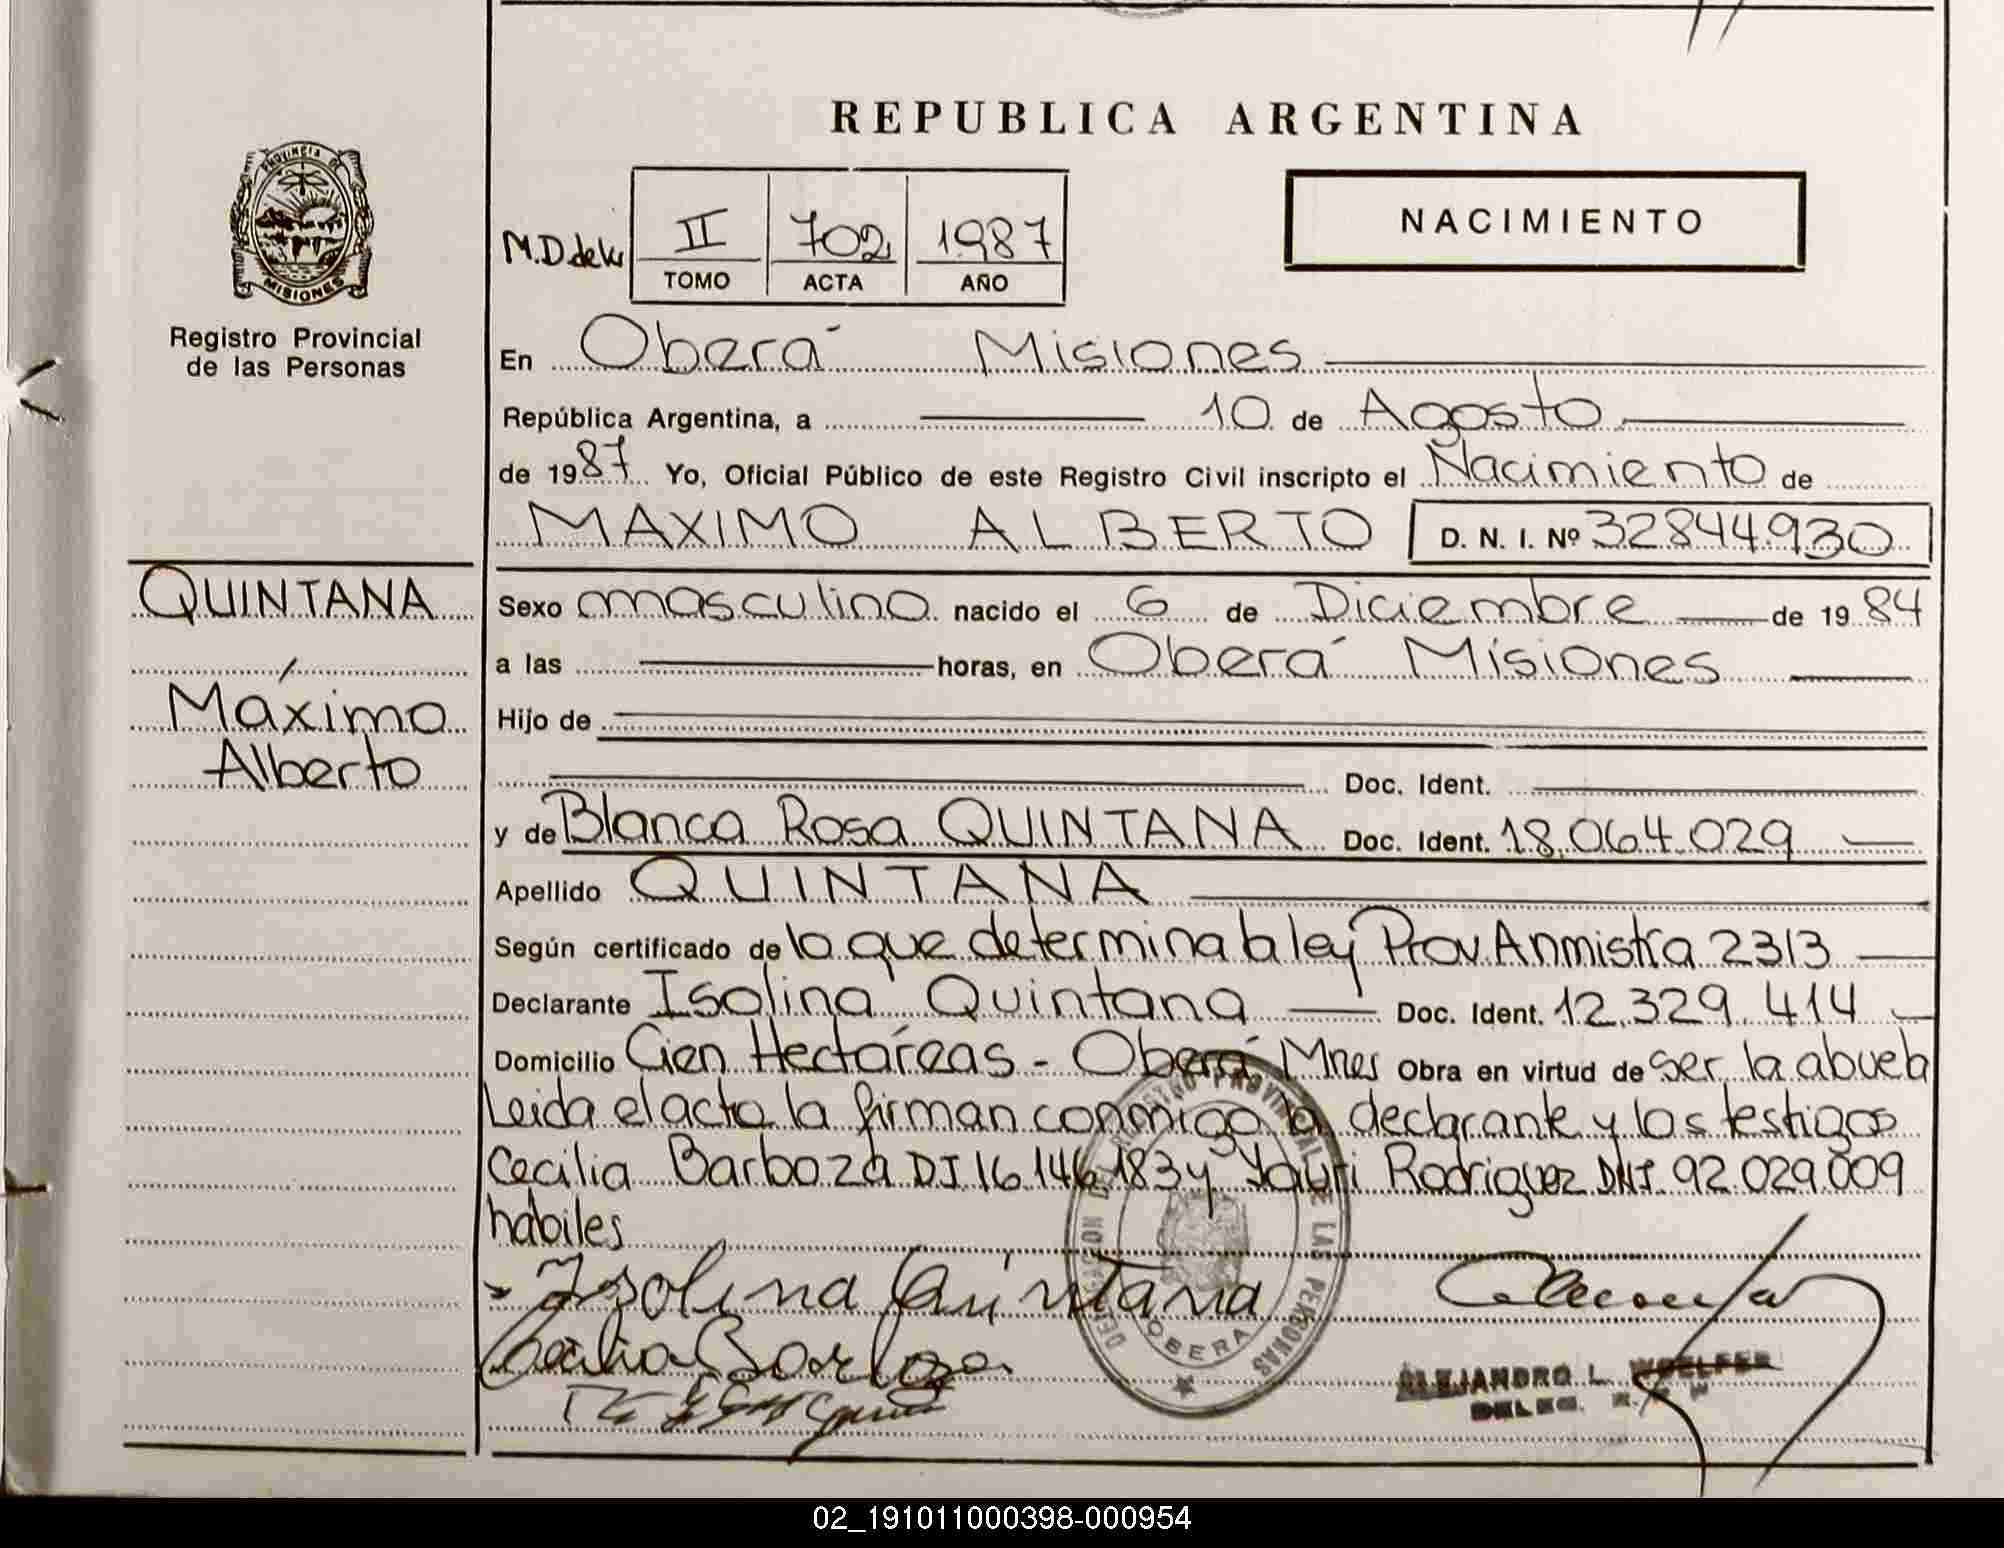 REPUBLICA ARGENTINA
PROVINCIA DE
MISIONES
Registro Provincial
de las Personas
M.D de ley
II 702 1987
TOMO ACTA AÑO
NACIMIENTO
En Oberá Misiones
República Argentina, a 10 de Agosto
de 1987 Yo, Oficial Público de este Registro Civil inscripto el Nacimiento de
MAXIMO ALBERTO D. N. I. Nº 32844.930
QUINTANA
Máximo
Alberto
Sexo masculino nacido el 6 de Diciembre de 1984
a las horas, en Oberá Misiones
Hijo de
Doc. Ident.
y de Blanca Rosa QUINTANA Doc. Ident. 18.064.029
Apellido QUINTANA
Según certificado de lo que determina la ley Prov. Anmistía 2313
Declarante Isolina Quintana Doc. Ident. 12.329.414
Domicilio Cien Hectáreas - Oberá Mnes Obra en virtud de ser la abuela
Leida el acta la firman conmigo la declarante y los testigos
Cecilia Barboza DI 16.146.183 y Yauri Rodriguez DNI. 92.029.009
hábiles
Isolina Quintana
Cecilia Barboza
DELEGACION DEL REGISTRO PROVINCIAL DE LAS PERSONAS
OBERA
ALEJANDRO L. WOELFER
DELEG.
02_191011000398-000954